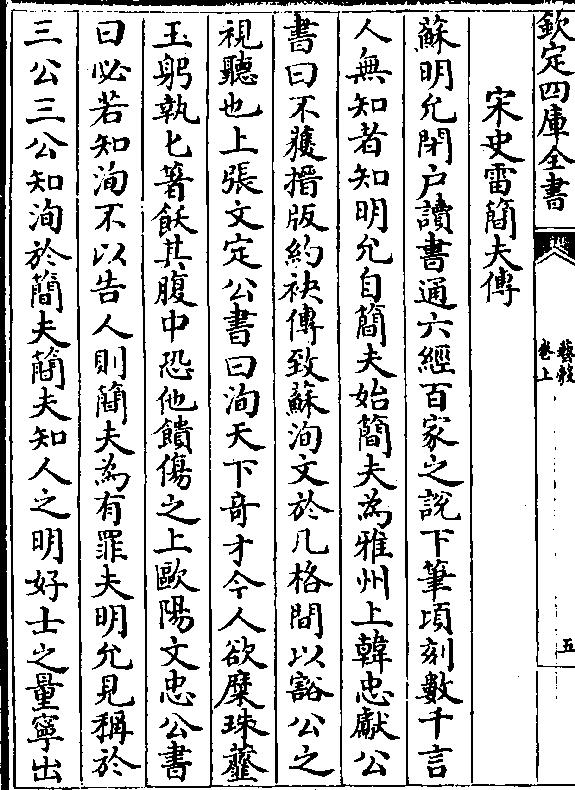 欽定四庫全書
藝彀
卷上
五
宋史雷簡夫傳
蘇明允閉户讀書通六經百家之說下筆頃刻數千言
人無知者知明允自簡夫始簡夫為雅州上韓忠獻公
書曰不獲搢版約袂傳致蘇洵文於几格間以豁公之
視聽也上張文定公書曰洵天下竒才今人欲糜珠虀
玉躬執匕箸飫其腹中恐他饋傷之上歐陽文忠公書
曰必若知洵不以告人則簡夫為有罪夫明允見稱於
三公三公知洵於簡夫簡夫知人之明好士之量寧出